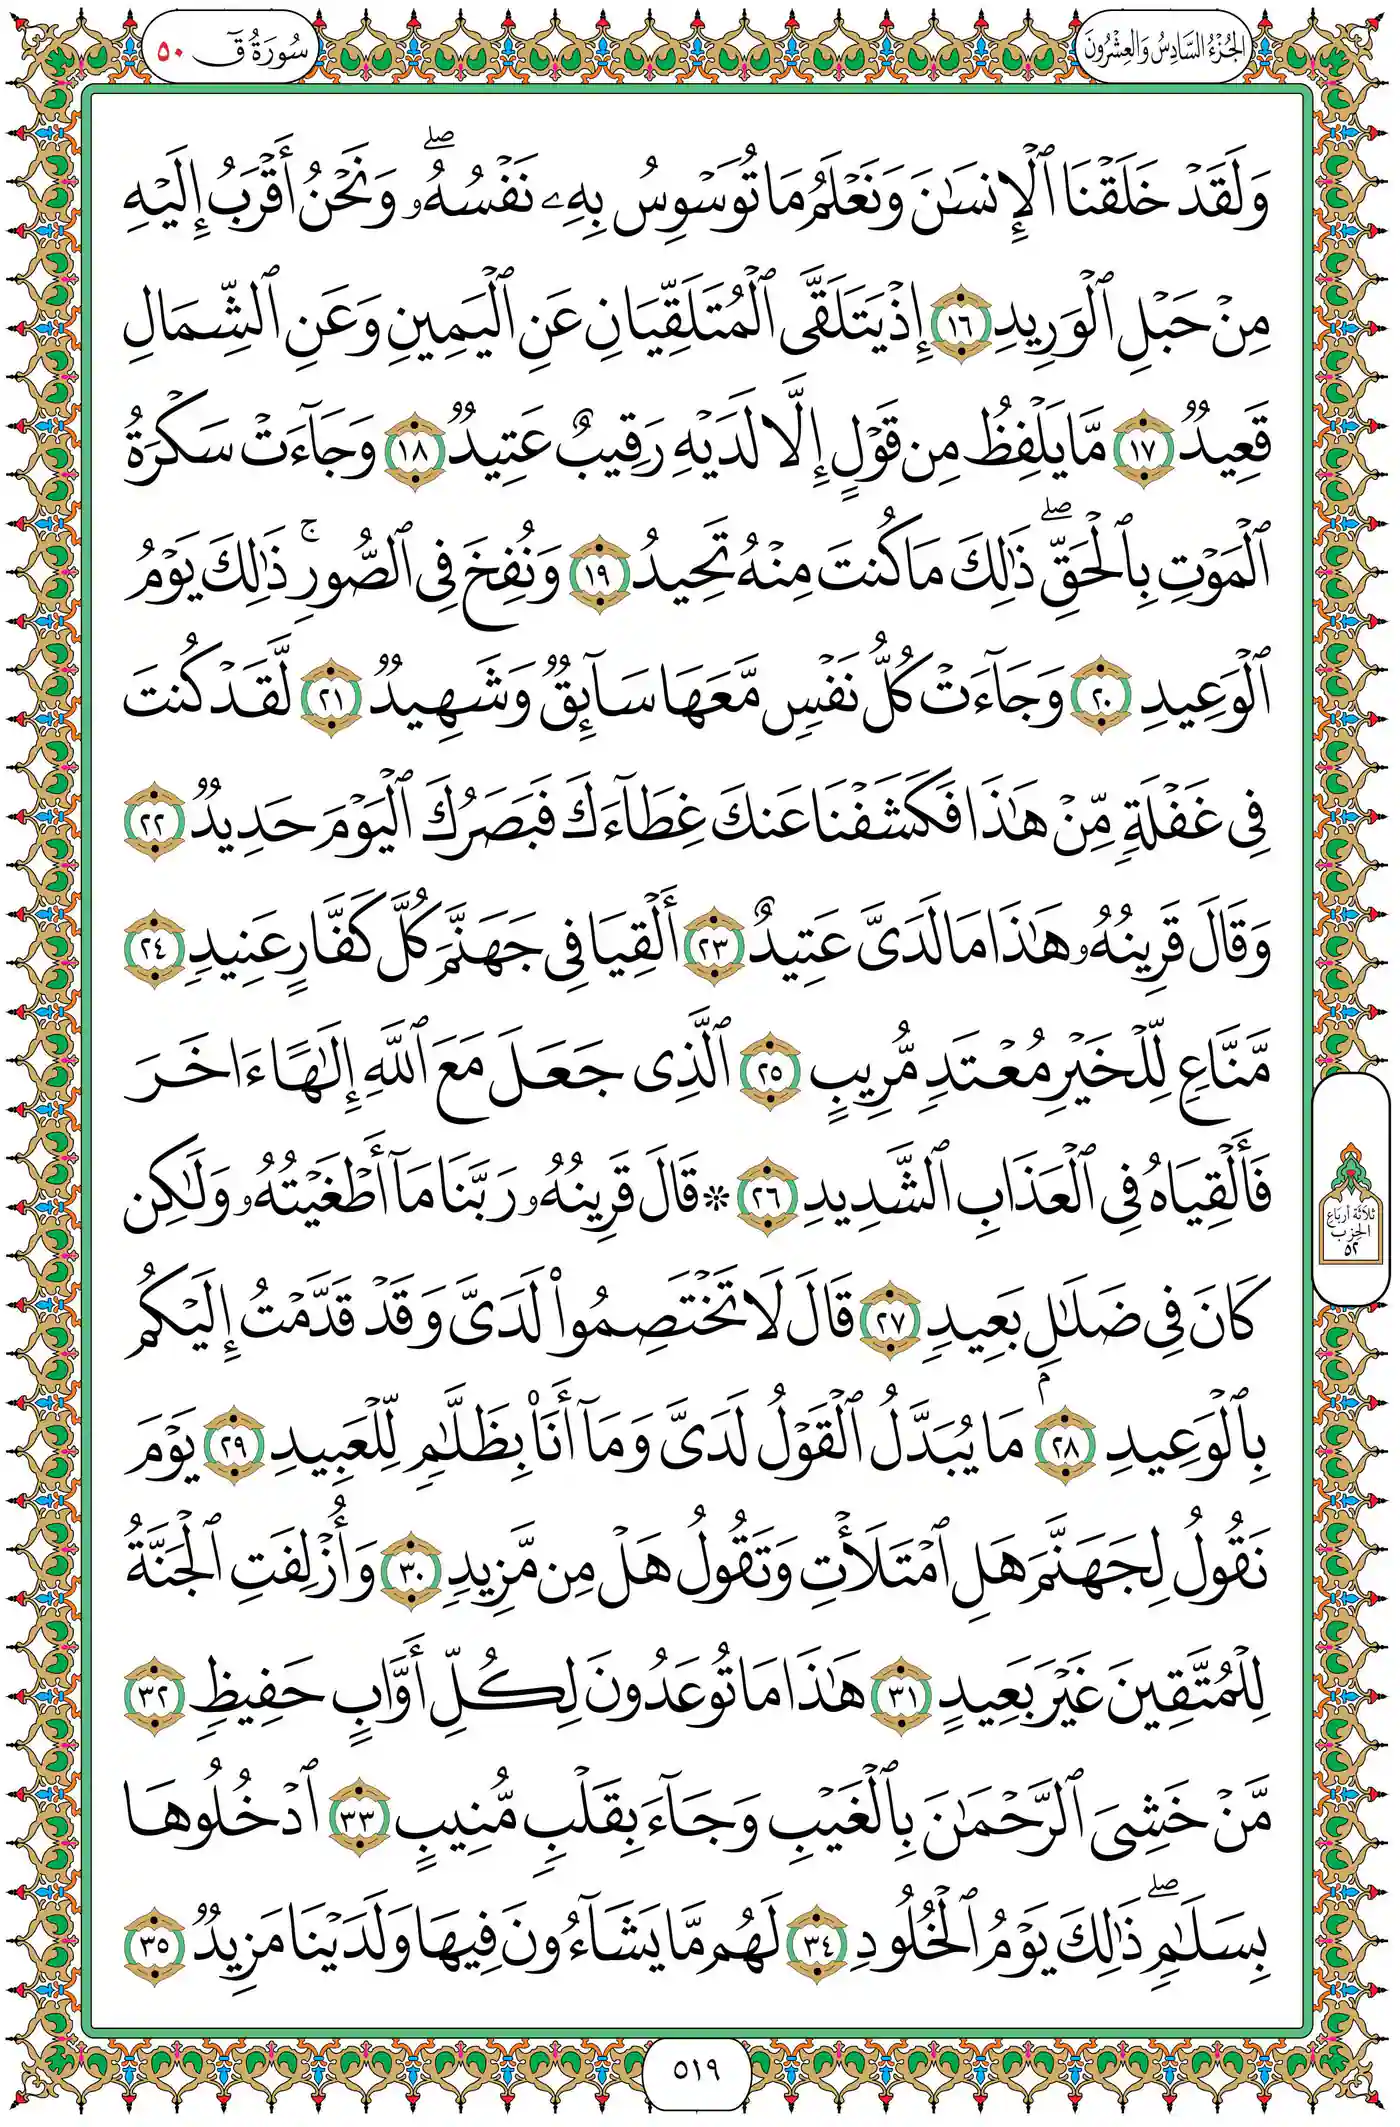 الجُزْءُ السَّادِسُ وَالعِشْرُونَ
سُورَةُ قٓ ٥٠
وَلَقَدْ خَلَقْنَا ٱلْإِنسَٰنَ وَنَعْلَمُ مَا تُوَسْوِسُ بِهِۦ نَفْسُهُۥۖ وَنَحْنُ أَقْرَبُ إِلَيْهِ
مِنْ حَبْلِ ٱلْوَرِيدِ ١٦ إِذْ يَتَلَقَّى ٱلْمُتَلَقِّيَانِ عَنِ ٱلْيَمِينِ وَعَنِ ٱلشِّمَالِ
قَعِيدٞ ١٧ مَّا يَلْفِظُ مِن قَوْلٍ إِلَّا لَدَيْهِ رَقِيبٌ عَتِيدٞ ١٨ وَجَآءَتْ سَكْرَةُ
ٱلْمَوْتِ بِٱلْحَقِّۖ ذَٰلِكَ مَا كُنتَ مِنْهُ تَحِيدُ ١٩ وَنُفِخَ فِي ٱلصُّورِۚ ذَٰلِكَ يَوْمُ
ٱلْوَعِيدِ ٢٠ وَجَآءَتْ كُلُّ نَفْسٖ مَّعَهَا سَآئِقٞ وَشَهِيدٞ ٢١ لَّقَدْ كُنتَ
فِي غَفْلَةٖ مِّنْ هَٰذَا فَكَشَفْنَا عَنكَ غِطَآءَكَ فَبَصَرُكَ ٱلْيَوْمَ حَدِيدٞ ٢٢
وَقَالَ قَرِينُهُۥ هَٰذَا مَا لَدَيَّ عَتِيدٌ ٢٣ أَلْقِيَا فِي جَهَنَّمَ كُلَّ كَفَّارٍ عَنِيدٖ ٢٤
مَّنَّاعٖ لِّلْخَيْرِ مُعْتَدٖ مُّرِيبٍ ٢٥ ٱلَّذِي جَعَلَ مَعَ ٱللَّهِ إِلَٰهًا ءَاخَرَ
فَأَلْقِيَاهُ فِي ٱلْعَذَابِ ٱلشَّدِيدِ ٢٦ ۞ قَالَ قَرِينُهُۥ رَبَّنَا مَآ أَطْغَيْتُهُۥ وَلَٰكِن
كَانَ فِي ضَلَٰلِۭ بَعِيدٖ ٢٧ قَالَ لَا تَخْتَصِمُوا۟ لَدَيَّ وَقَدْ قَدَّمْتُ إِلَيْكُم
بِٱلْوَعِيدِ ٢٨ مَا يُبَدَّلُ ٱلْقَوْلُ لَدَيَّ وَمَآ أَنَا۠ بِظَلَّٰمٖ لِّلْعَبِيدِ ٢٩ يَوْمَ
نَقُولُ لِجَهَنَّمَ هَلِ ٱمْتَلَأْتِ وَتَقُولُ هَلْ مِن مَّزِيدٖ ٣٠ وَأُزْلِفَتِ ٱلْجَنَّةُ
لِلْمُتَّقِينَ غَيْرَ بَعِيدٍ ٣١ هَٰذَا مَا تُوعَدُونَ لِكُلِّ أَوَّابٍ حَفِيظٖ ٣٢
مَّنْ خَشِيَ ٱلرَّحْمَٰنَ بِٱلْغَيْبِ وَجَآءَ بِقَلْبٖ مُّنِيبٍ ٣٣ ٱدْخُلُوهَا
بِسَلَٰمٖۖ ذَٰلِكَ يَوْمُ ٱلْخُلُودِ ٣٤ لَهُم مَّا يَشَآءُونَ فِيهَا وَلَدَيْنَا مَزِيدٞ ٣٥
ثَلَاثَة أَربَاع
الحِزب
٥٢
٥١٩